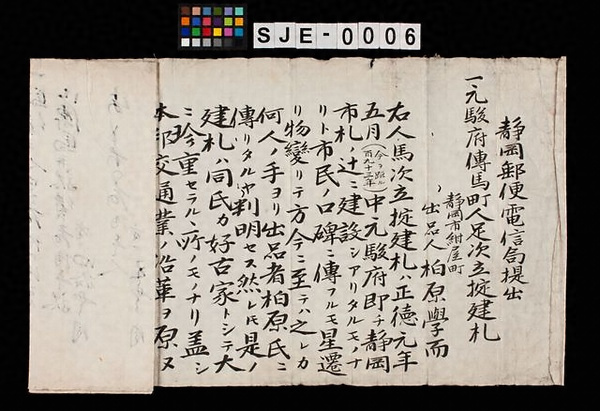 SJE-0006
静岡郵便電信局提出
一元駿府傳馬町人足次立掟建札
静岡市紺屋町
出品人 柏原學而
右人馬次立掟建札ハ正徳元年
五月(今ヲ距ル百九十三年)中元駿府即チ静岡
市札ノ辻ニ建設シアリタルモノナ
リト市民ノ口碑ニ傳フルモ星遷
リ物變リテ方今ニ至テハ之レカ
何人ノ手ヨリ出品者柏原氏ニ
傳リタルヤ判明セス然レ𪜈是ノ
建札ハ同氏カ好古家トシテ大
ニ珍重セラルヽ所ノモノナリ蓋シ
本邦交通業ノ沿革ヲ原ヌ